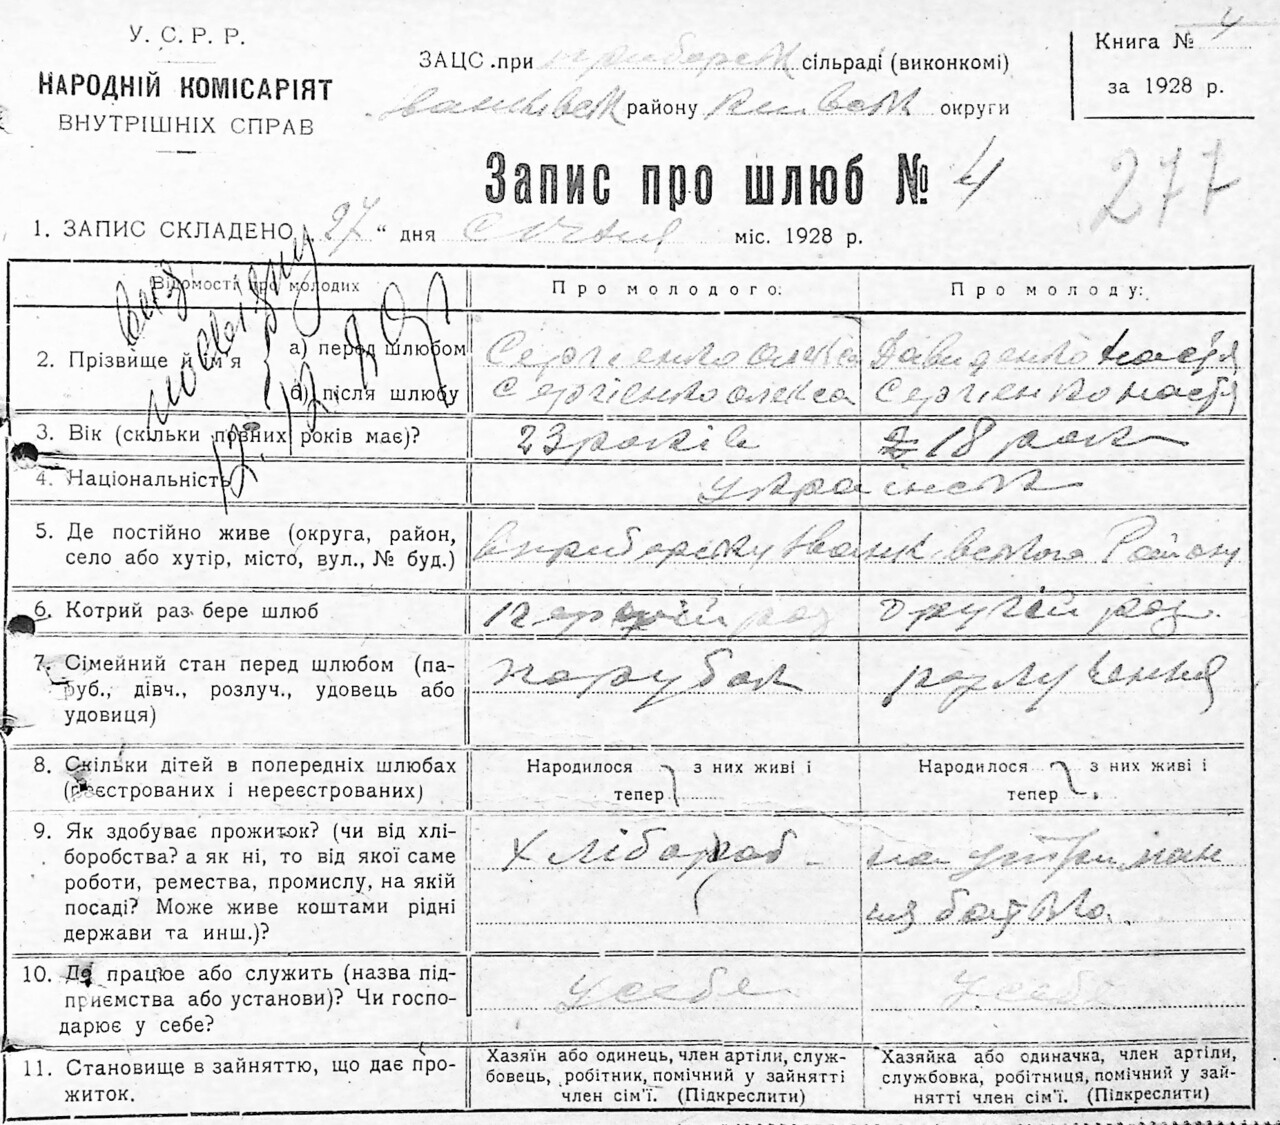 У. С. Р. Р.
НАРОДНІЙ КОМІСАРІЯТ
ВНУТРІШНІХ СПРАВ
ЗАЦС при приборськ сільраді (виконкомі)
Іванківськ району київськ округи
Книга № 4
за 1928 р.
Запис про шлюб № 4
277
1. ЗАПИС СКЛАДЕНО „27“ дня Січня міс. 1928 р.
Відомості про молодих
Про молодого:
Про молоду:
2. Прізвище й ім'я
а) перед шлюбом
Сергієнко олекса
Давиденко Настя
б) після шлюбу
Сергієнко олекса
Сергієнко настя
3. Вік (скільки повних років має)?
23 років
18 роки
4. Національність
українськ
5. Де постійно живе (округа, район,
село або хутір, місто, вул., № буд.)
в приборську Іванківського Району
6. Котрий раз бере шлюб
первий раз
другій раз
7. Сімейний стан перед шлюбом (па-
руб., дівч., розлуч., удовець або
удовиця)
парубок
розлученна
8. Скільки дітей в попередніх шлюбах
(реєстрованих і нереєстрованих)
Народилося з них живі і
тепер
Народилося з них живі і
тепер
9. Як здобуває прожиток? (чи від хлі-
боробства? а як ні, то від якої саме
роботи, ремества, промислу, на якій
посаді? Може живе коштами рідні
держави та инш.)?
Хлібороб
на утриман
ня батька
10. Де працює або служить (назва під-
приємства або установи)? Чи госпо-
дарює у себе?
усебе
усебе
11. Становище в зайняттю, що дає про-
житок.
Хазяїн або одинець, член артіли, служ-
бовець, робітник, помічний у зайнятті
член сім'ї. (Підкреслити)
Хазяйка або одиначка, член артіли,
службовка, робітниця, помічний у зай-
нятті член сім'ї. (Підкреслити)